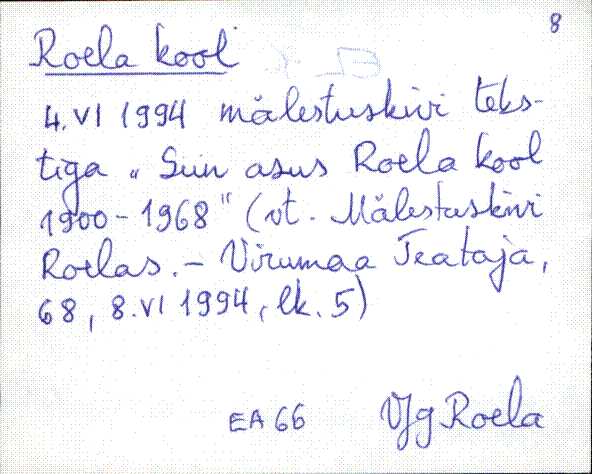 8
Roela kool
4. VI 1994 mälestuskivi teks-
tiga „Siin asus Roela kool
1900-1968" (vt. Mälestuskivi
Roelas. - Virumaa Teataja,
68, 8. VI 1994, lk. 5)
EA 66 VJg Roela